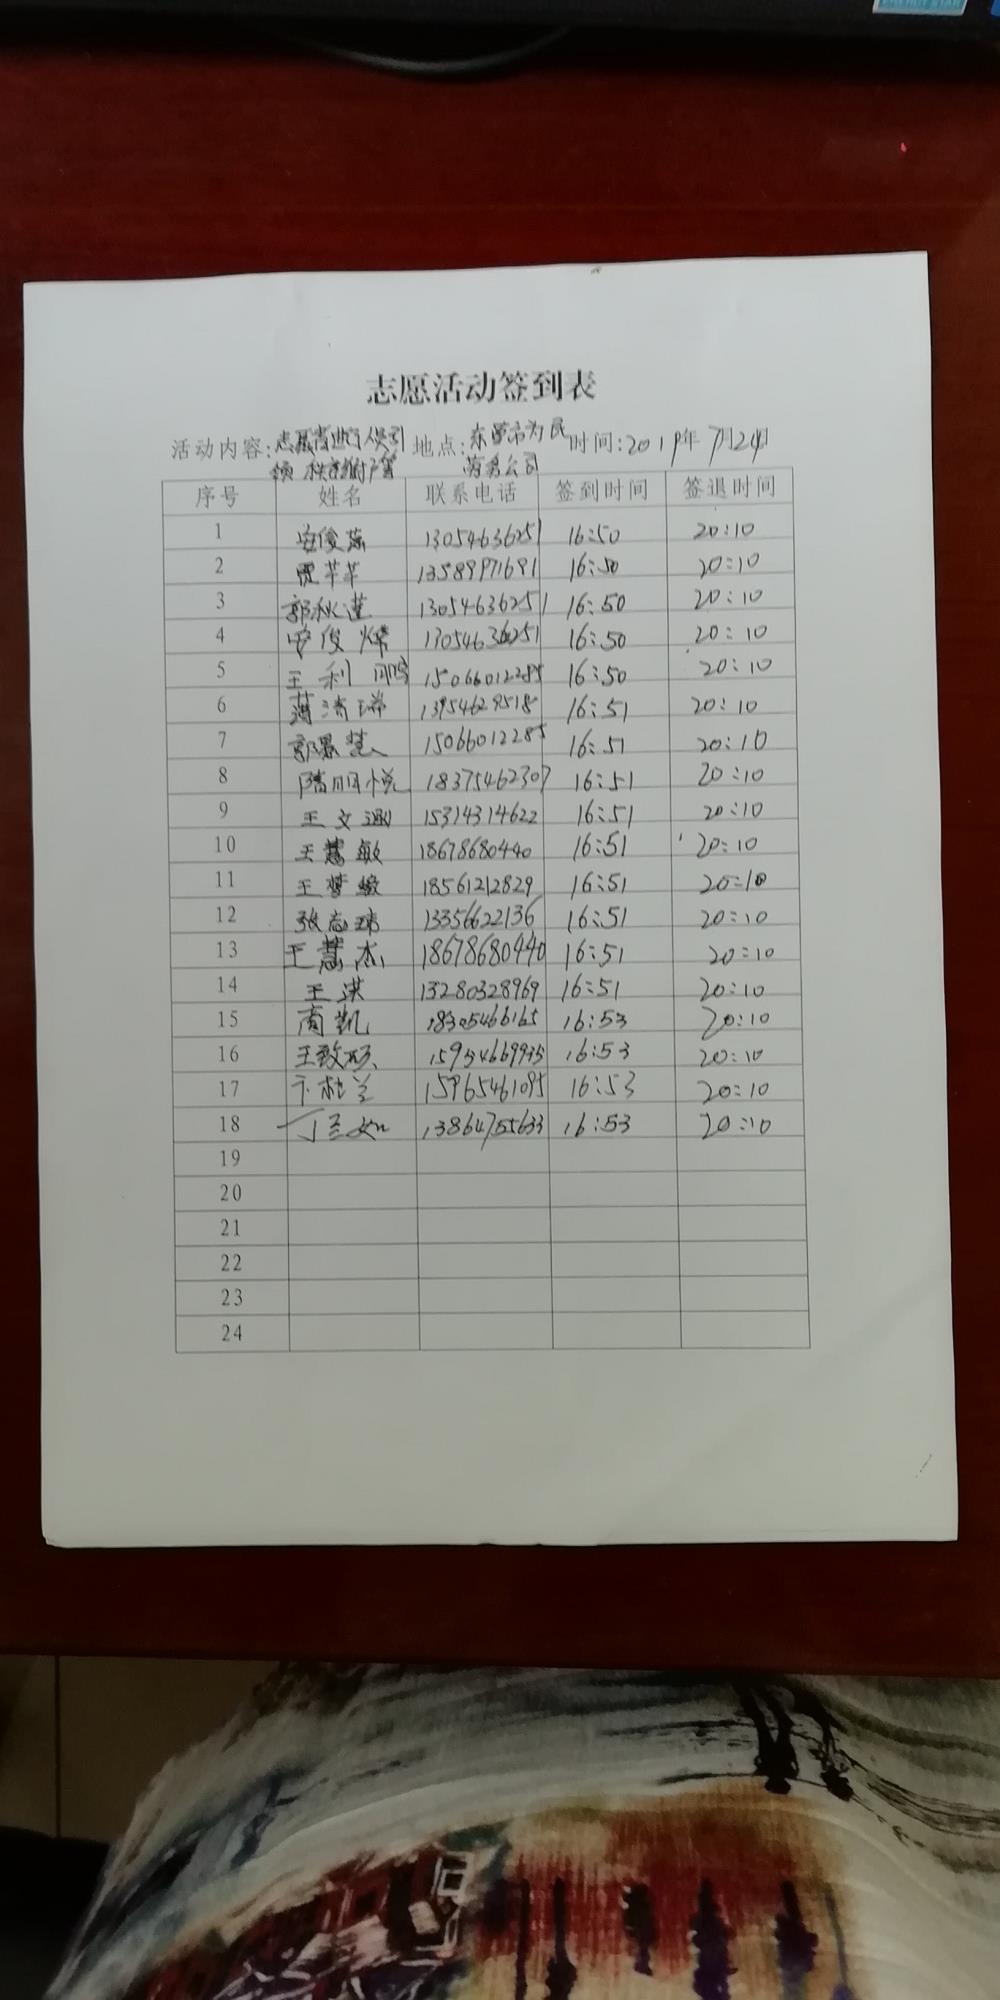 ENERGY STAR
志愿活动签到表
活动内容:志愿者进行人员引 地点:东营市为民 时间:2019年7月24日
领 秩序维护等 劳务公司
序号 姓名 联系电话 签到时间 签退时间
1 安俊燕 13054636251 16:50 20:10
2 贾芊芊 13589971691 16:50 20:10
3 郭秋莲 13054636251 16:50 20:10
4 安俊燦 13054636251 16:50 20:10
5 王利鹏 15066012285 16:50 20:10
6 蒲清瑞 13954629518 16:51 20:10
7 15066012285 16:51 20:10
8 隋明悦 18375462307 16:51 20:10
9 王文 15314314622 16:51 20:10
10 王慧敏 18678680440 16:51 20:10
11 王梦缘 18561212829 16:51 20:10
12 张志瑋 13356622136 16:51 20:10
13 王慧杰 18678680440 16:51 20:10
14 王淇 13280328969 16:51 20:10
15 商凯 18305466165 16:53 20:10
16 王致硕 15954669935 16:53 20:10
17 卞桂兰 15965461095 16:53 20:10
18 丁兰如 13864755633 16:53 20:10
19
20
21
22
23
24